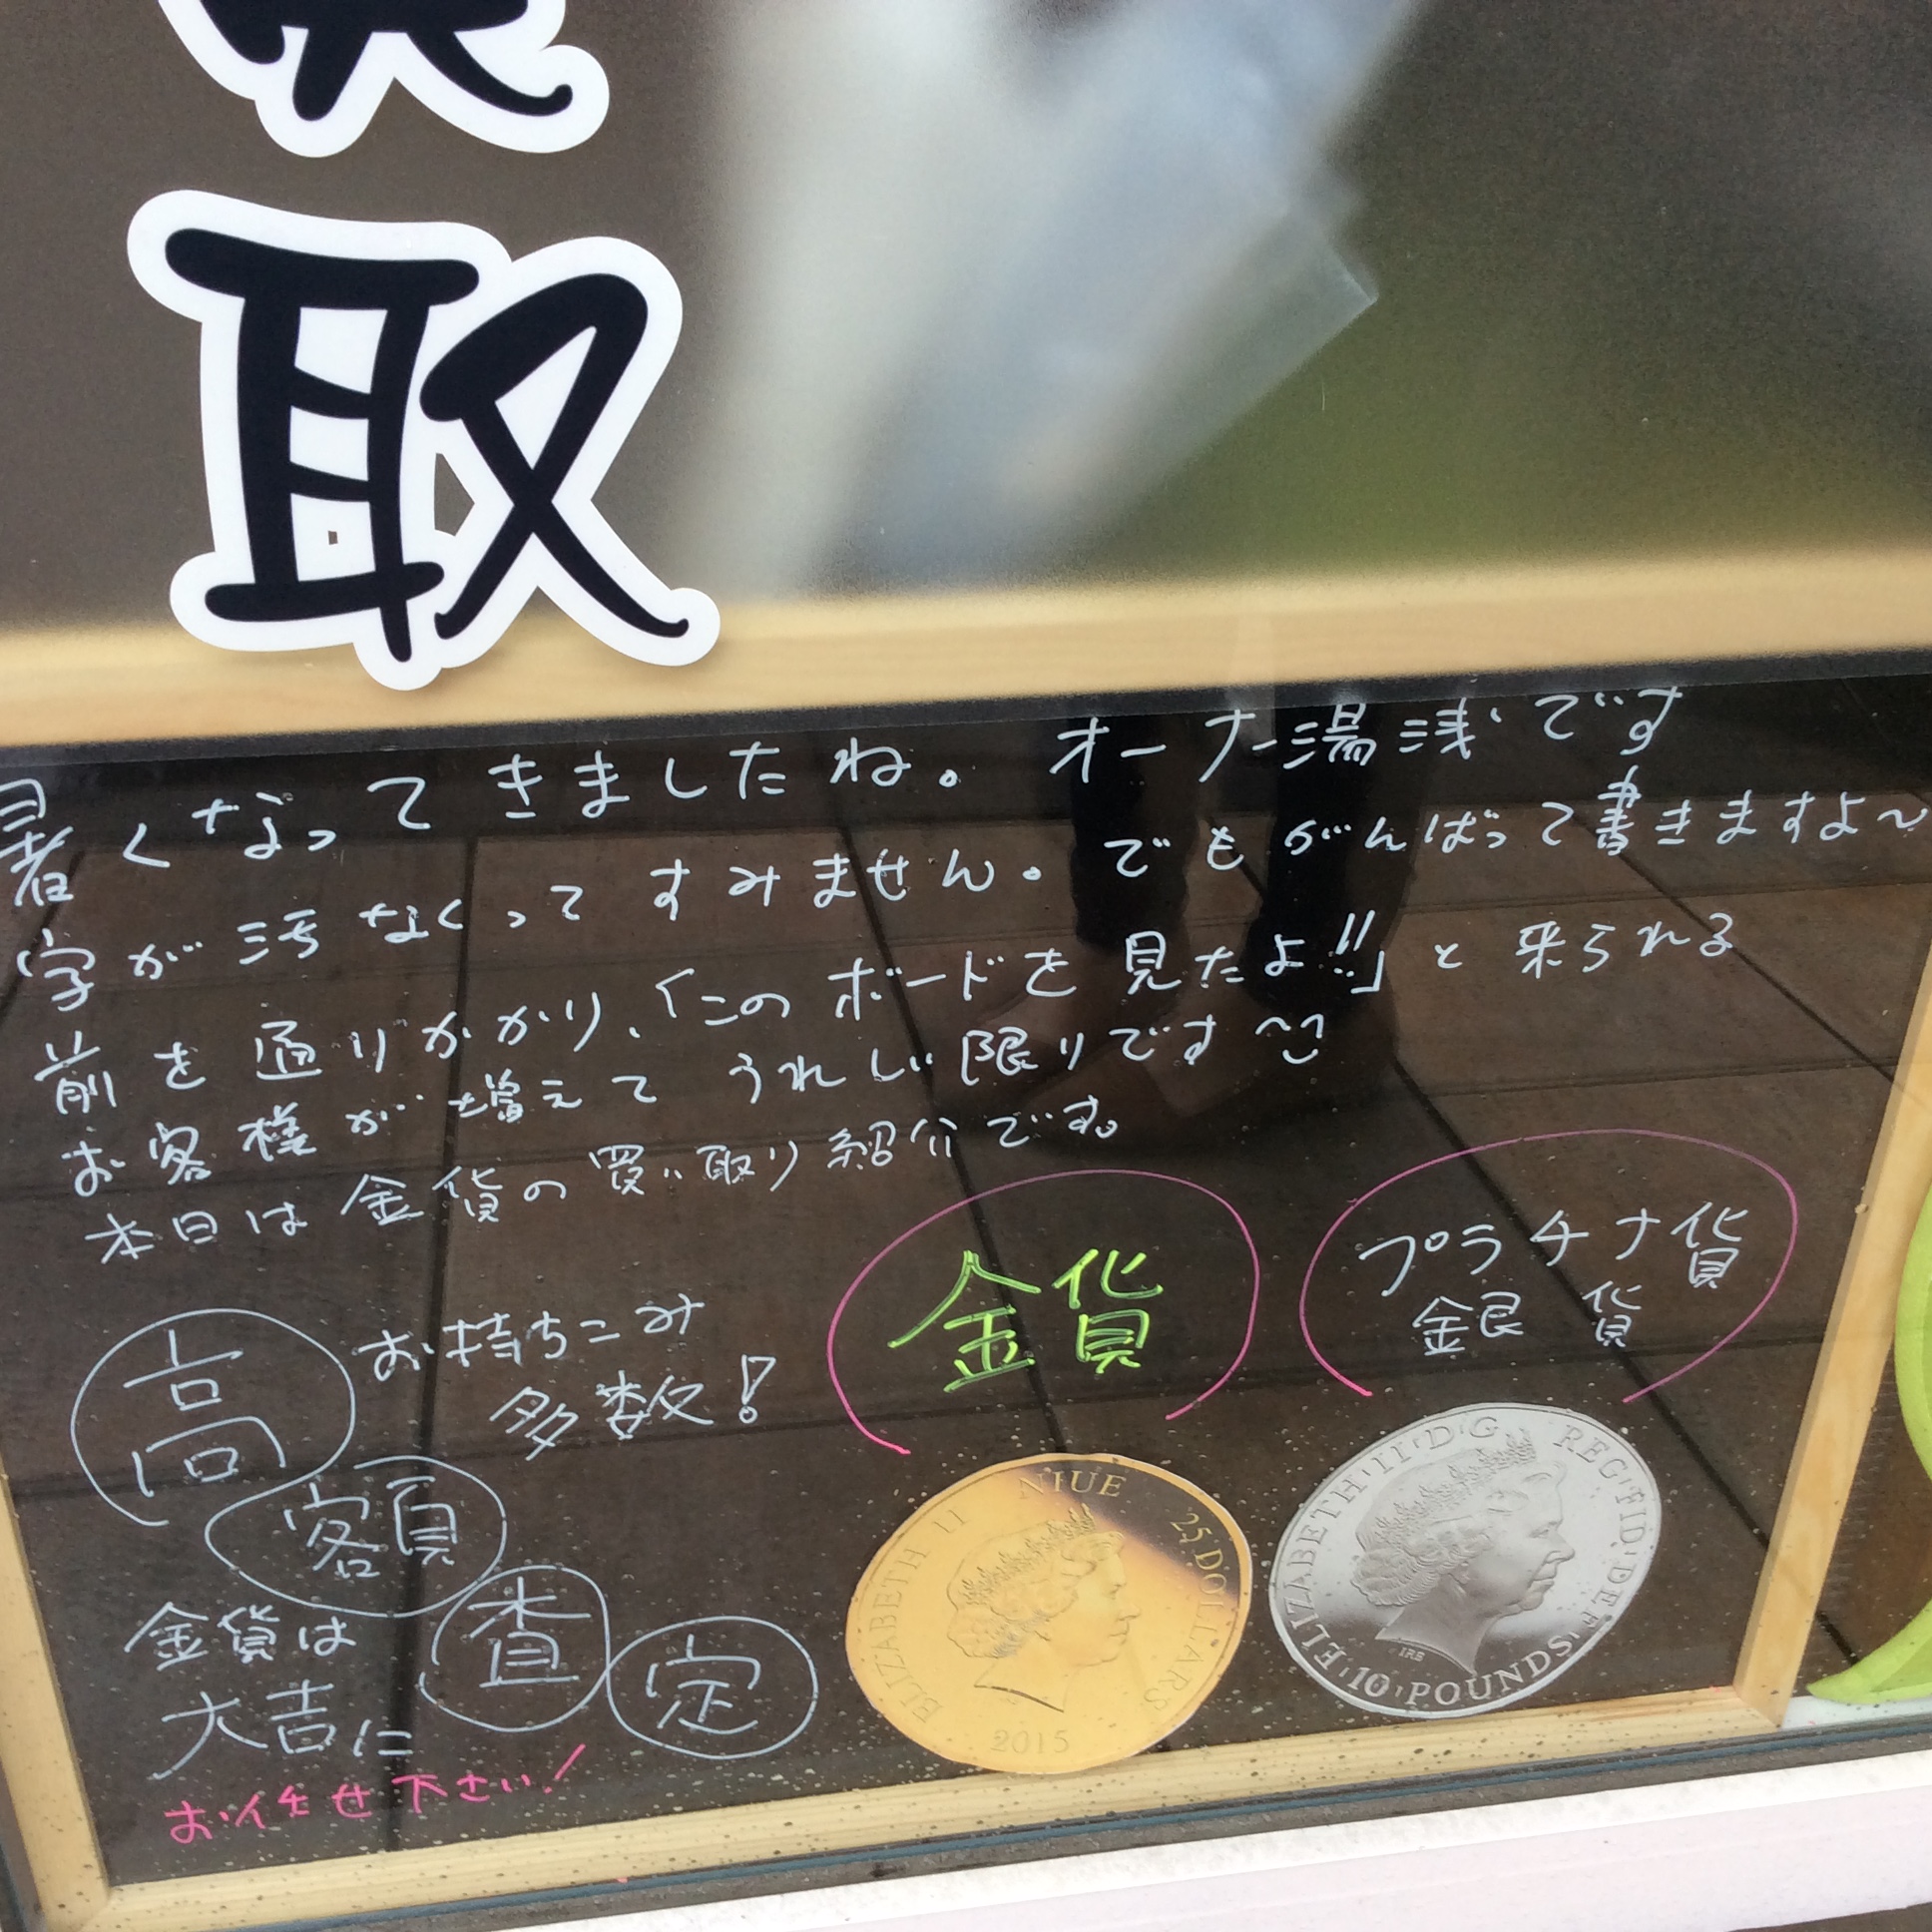 取
暑くなってきましたね。オーナー湯浅です
字が汚なくってすみません。でもがんばって書きますよ〜
前を通りかかり、「このボードを見たよ!!」と来られる
お客様が増えてうれしい限りです
本日は金貨の買い取り紹介です。
高額査定
お持ちこみ
多数!
金貨は
大吉に
お任せ下さい!
金貨
プラチナ貨
銀貨
ELIZABETH II NIUE 25 DOLLARS
2015
ELIZABETH·II·D·G REG·FID·DEF
IRB
10·POUNDS